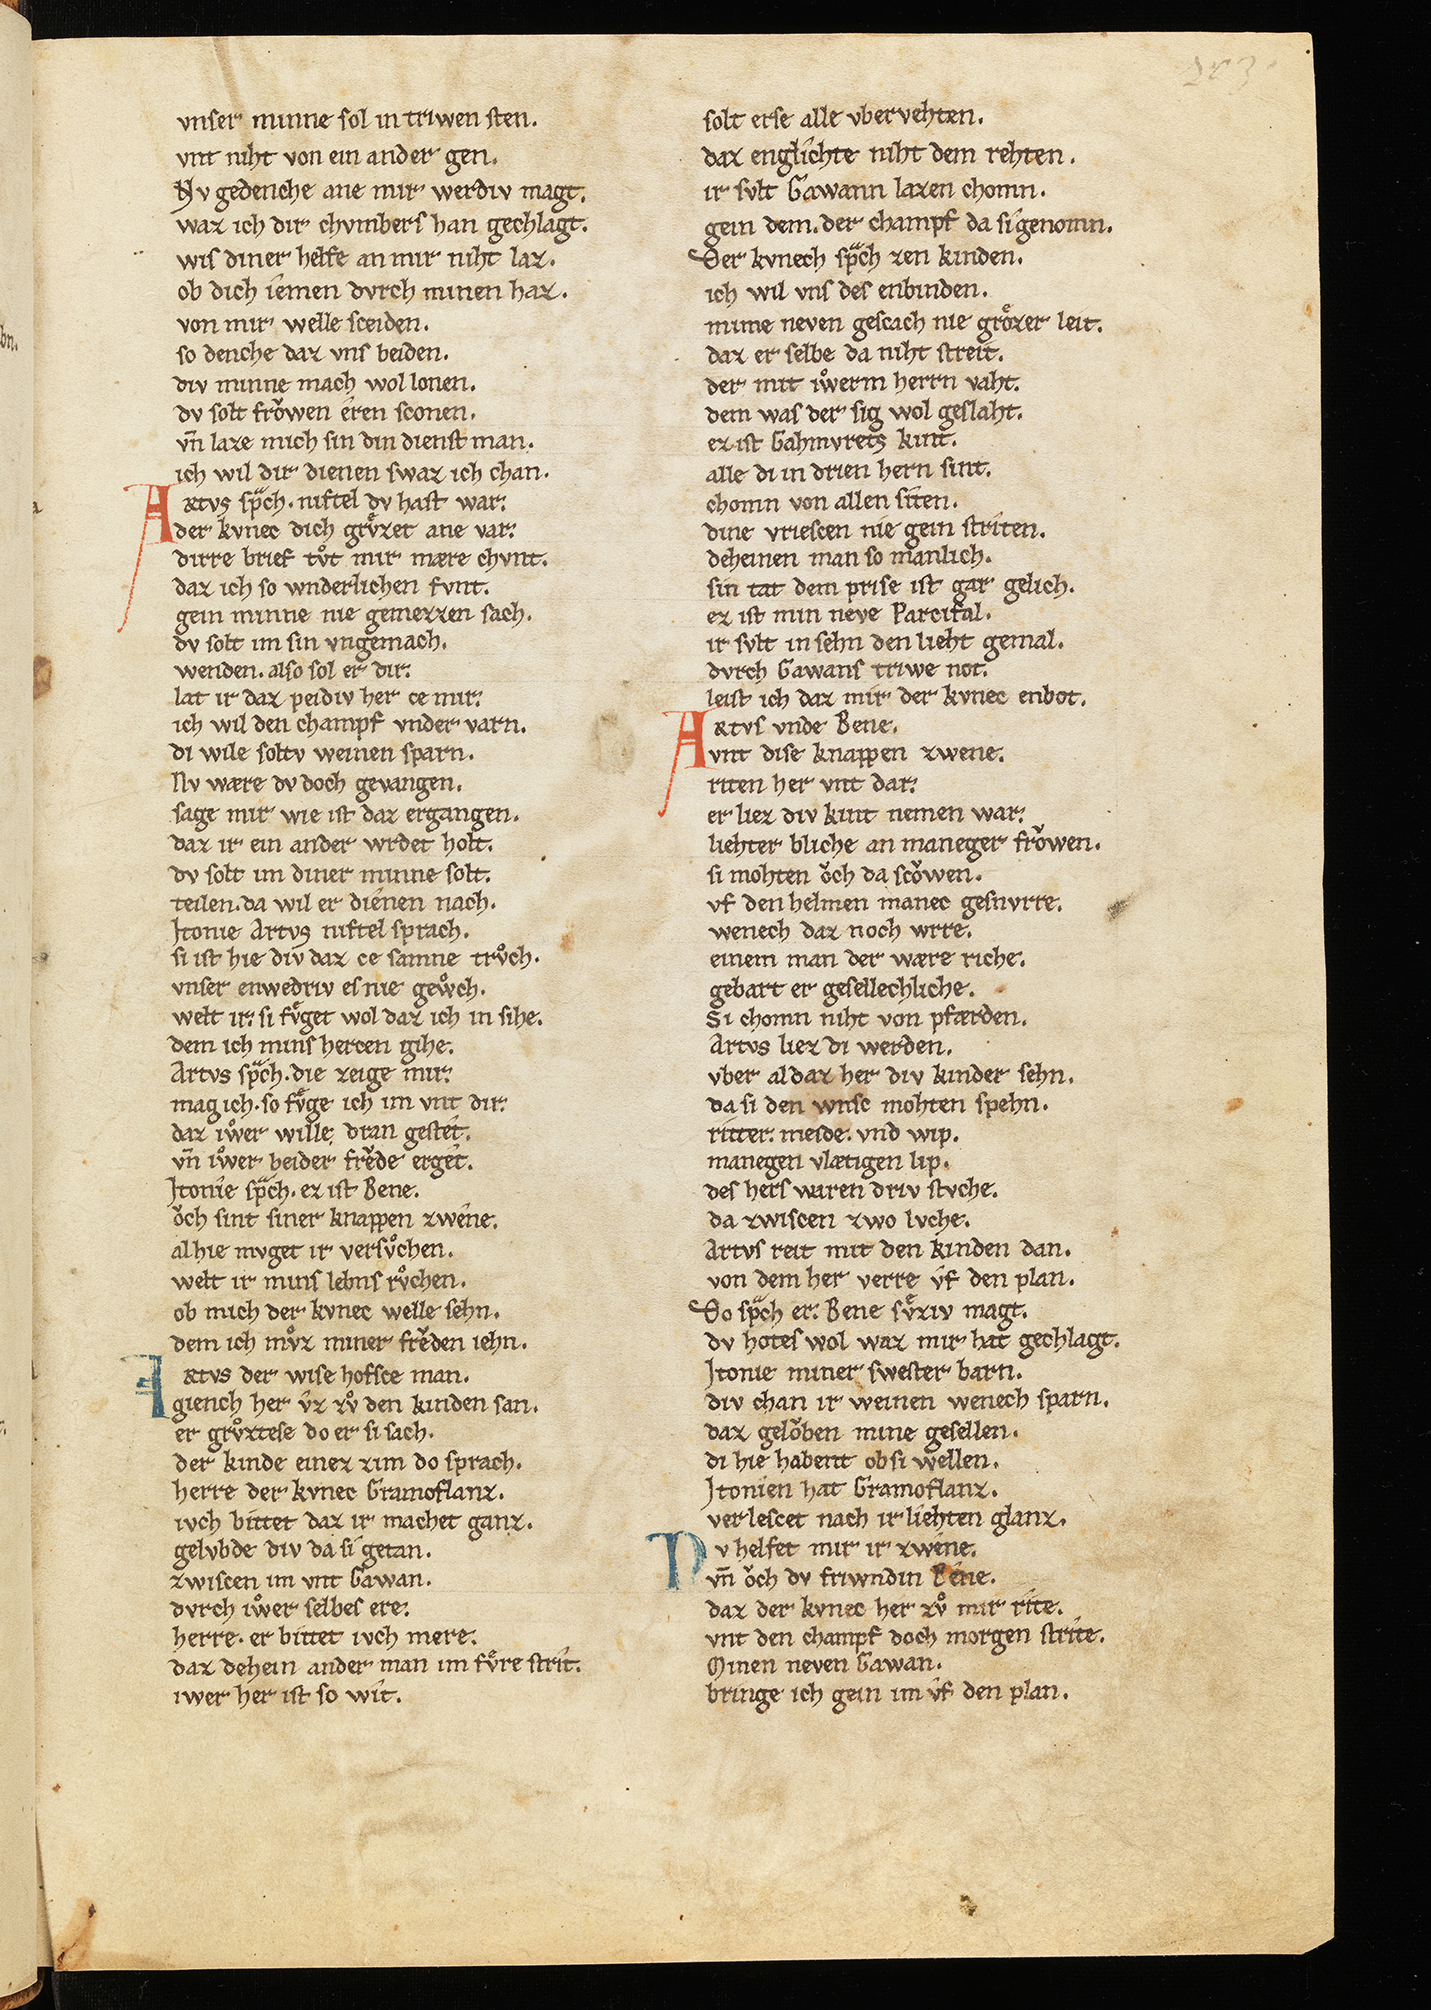 vnser minne sol in triwen sten.
vnt niht von ein ander gen.
Nv gedenche ane mir werdiv magt.
waz ich dir chvmbers han gechlagt.
wis diner helfe an mir niht laz.
ob dich iemen dvrch minen haz.
von mir welle sceiden.
so denche daz vns beiden.
div minne mach wol lonen.
dv solt frǒwen eren sconen.
vn̄ laze mich sin din dienst man.
ich wil dir dienen swaz ich chan.
Artvs spͣch. niftel dv hast war.
der kvnec dich grv̊zet ane var.
dirre brief tv̊t mir mære chvnt.
daz ich so wnderlichen fvnt.
gein minne nie gemezzen sach.
dv solt im sin vngemach.
wenden. also sol er dir.
lat ir daz peidiv her ce mir.
ich wil den champf vnder varn.
di wile soltv weinen sparn.
Nv wære dv doch gevangen.
sage mir wie ist daz ergangen.
daz ir ein ander wrdet holt.
dv solt im diner minne solt.
teilen. da wil er dienen nach.
Itonie Artvs niftel sprach.
si ist hie div daz ce samne trv̊ch.
vnser enwedriv es nie gewv̊ch.
welt ir. si fv̊get wol daz ich in sihe.
dem ich mins hercen gihe.
Artvs spͣch. die zeige mir.
mag ich. so fv̊ge ich im vnt dir.
daz iwͦer wille dran gestet.
vn̄ iwͦer beider frěde erget.
Itonie spͣch. ez ist Bene.
ǒch sint siner knappen zwene.
al hie mvget ir versv̊chen.
welt ir mins lebns rv̊chen.
ob mich der kvnec welle sehn.
dem ich mv̊z miner frěden iehn.
Artvs der wise hofsce man.
giench her v̂z zv̊ den kinden san.
er grv̊ztese do er si sach.
der kinde einez zim do sprach.
herre der kvnec Gramoflanz.
ivch bittet daz ir machet ganz.
gelvbde div da si getan.
zwiscen im vnt Gawan.
dvrch iwͦer selbes ere.
herre. er bittet ivch mere.
daz dehein ander man im fv̊re strit.
iwer her ist so wit.
solt erse alle vbervehten.
daz englichte niht dem rehten.
ir svlt Gawann lazen chomn.
gein dem. der champf da si genomn.
Der kvnech spͣch zen kinden.
ich wil vns des enbinden.
mime neven gescach nie grǒzer leit.
daz er selbe da niht streit.
der mit iwͦerm herrn vaht.
dem was der sig wol geslaht.
ez ist Gahmvrets kint.
alle di in drien hern sint.
chomn von allen siten.
dine vriescen nie gein striten.
deheinen man so manlich.
sin tat dem prise ist gar gelich.
ez ist min neve Parcifal.
ir svlt in sehn den lieht gemal.
dvrch Gawans triwe not.
leist ich daz mir der kvnec enbot.
Artvs vnde Bene.
vnt dise knappen zwene.
riten her vnt dar.
er liez div kint nemen war.
liehter bliche an maneger frǒwen.
si mohten ǒch da scǒwen.
vf den helmen manec gesnvrre.
wenech daz noch wrre.
einem man der wære riche.
gebart er gesellechliche.
Si chomn niht von pfærden.
Artvs liez di werden.
vber al daz her div kinder sehn.
da si den wnsc mohten spehn.
ritter. meide. vnd wip.
manegen vlætigen lip.
des hers waren driv stvche.
da zwiscen zwo lvche.
Artvs reit mit den kinden dan.
von dem her verre v̂f den plan.
Do spͣch er. Bene sv̊ziv magt.
dv hotes wol waz mir hat gechlagt.
Itonie miner swester barn.
div chan ir weinen wenech sparn.
daz gelǒben mine gesellen.
di hie habent ob si wellen.
Itonien hat Gramoflanz.
verlescet nach ir liehten glanz.
Nv helfet mir ir zwene.
vn̄ ǒch dv friwndin Bene.
daz der kvnec her zv̊ mir rite.
vnt den champf doch morgen strite.
Minen neven Gawan.
bringe ich gein im v̂f den plan.